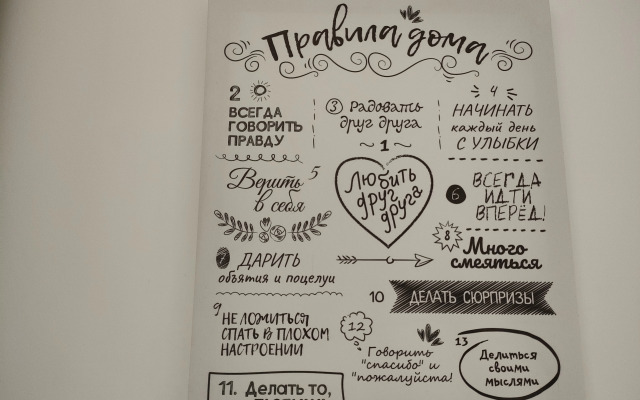 Правила дома
2
ВСЕГДА
ГОВОРИТЬ
ПРАВДУ
3 Радовать
друг друга
4
НАЧИНАТЬ
каждый день
С УЛЫБКИ
~ 1 ~
Любить
друг
друга
Верить 5
в себя
6 ВСЕГДА
ИДТИ
ВПЕРЁД!
7 ДАРИТЬ
объятия и поцелуи
8 Много
смеяться
9
НЕ ЛОЖИТЬСЯ
СПАТЬ В ПЛОХОМ
НАСТРОЕНИИ
10 ДЕЛАТЬ СЮРПРИЗЫ
12
Говорить
"спасибо" и
"пожалуйста!
13
Делиться
своими
мыслями
11. Делать то,